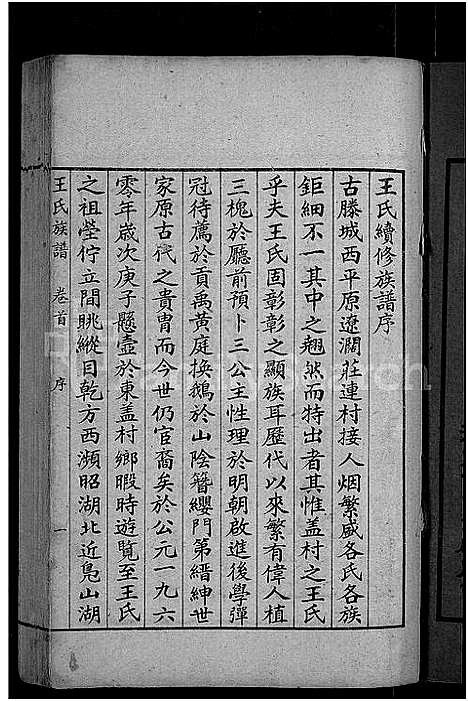 王氏續修族譜序
古滕城西平原遼濶莊連村接人烟繁盛各氏各族
鉅細不一其中之翹然而特出者其惟盖村之王氏
乎夫王氏固彰彰之顯族耳歷代以來繁有偉人植
三槐於廳前預卜三公主性理於明朝啟進後學彈
冠待薦於貢禹黄庭换鵝於山陰簪纓門第縉紳世
家原古代之貴胄而今世仍官裔矣於公元一九六
零年歲次庚子懸壺於東盖村鄉暇時遊覽至王氏
之祖塋佇立間眺縱目乾方西瀕昭湖北近鳧山湖
王氏族譜 卷首 序 一